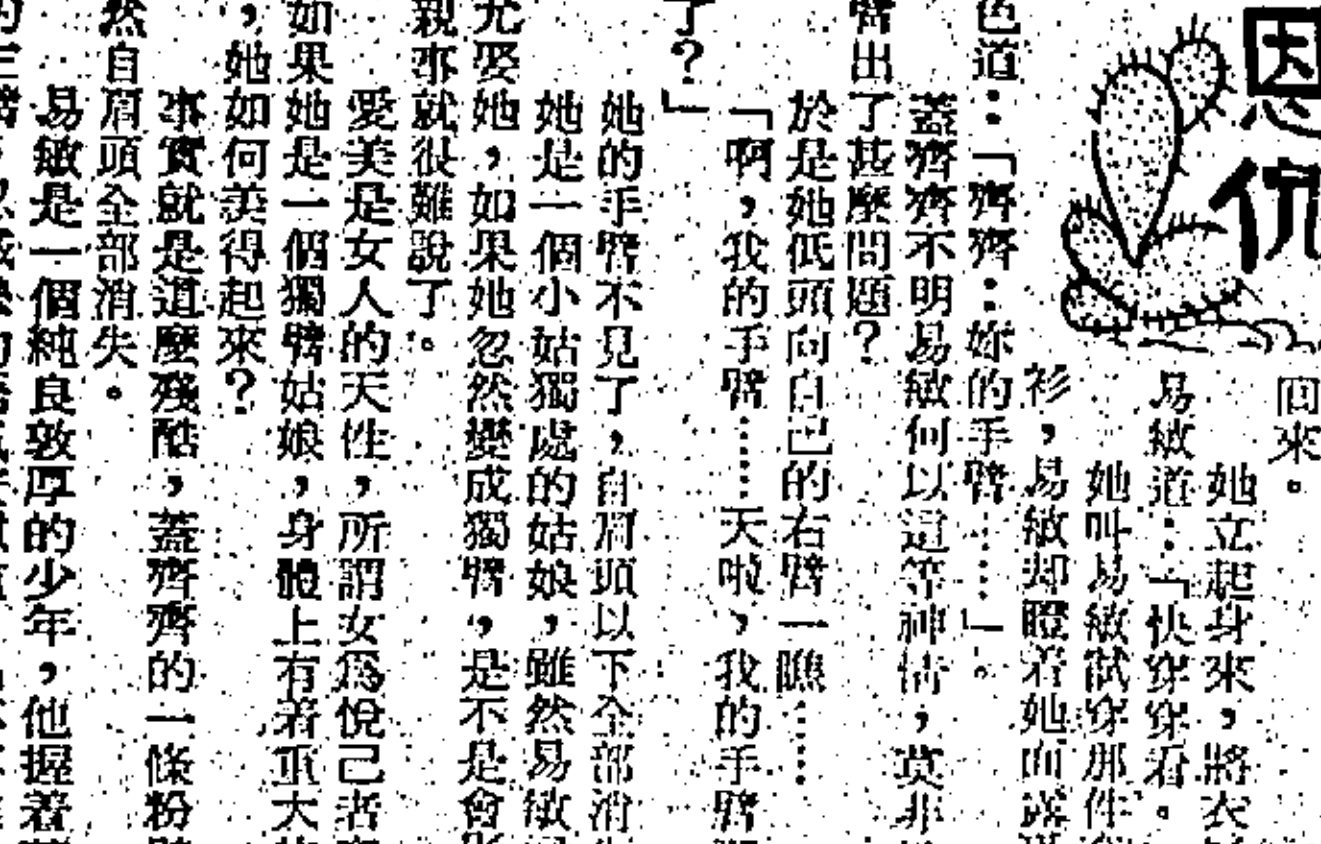 恩仇
回來。
她立起身來,將衣
易敏道:「快穿穿看。
她叫易敏試穿那件
衫,易敏却瞪着她面露
色道:「齊齊:妳的手臂……」。
蓋齊齊不明易敏何以這等神情,莫非
臂出了甚麼問題?
於是她低頭向自己的右臂一瞧……
「啊,我的手臂……天啦,我的手臂
了?」
她的手臂不見了,自肩頭以下全部消
她是一個小姑獨處的姑娘,雖然易敏
娶她,如果她忽然變成獨臂,是不是會
親事就很難說了。
愛美是女人的天性,所謂女爲悅己者
如果她是一個獨臂姑娘,身體上有着重大
,她如何美得起來?
事實就是這麼殘酷,蓋齊齊的一條粉
然自肩頭全部消失。
易敏是一個純良敦厚的少年,他握着